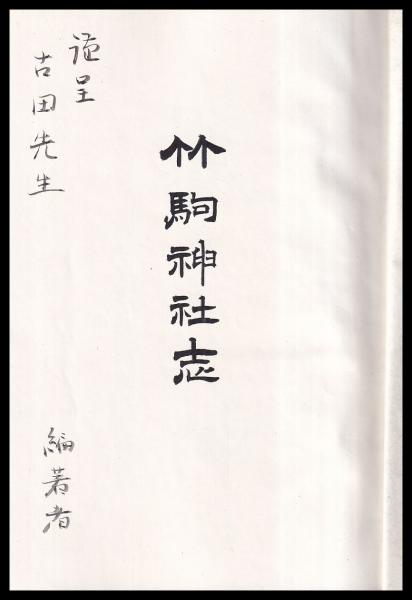 竹駒神社志
謹呈
古田先生
編著者